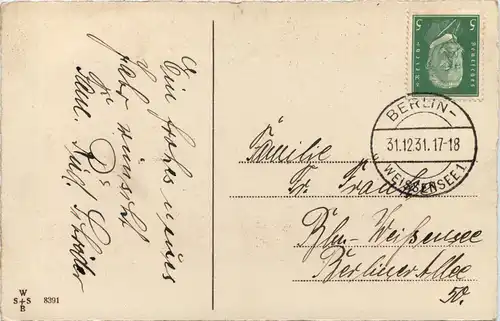 Ein frohes neues
Jahr wünscht
Fam.
Familie
Fr.
Bln-Weißensee
Berliner Allee
50.
BERLIN-
31.12.31.17-18
WEISSENSEE 1
5 5
Deutsches Reich
W
S+S
B
8391